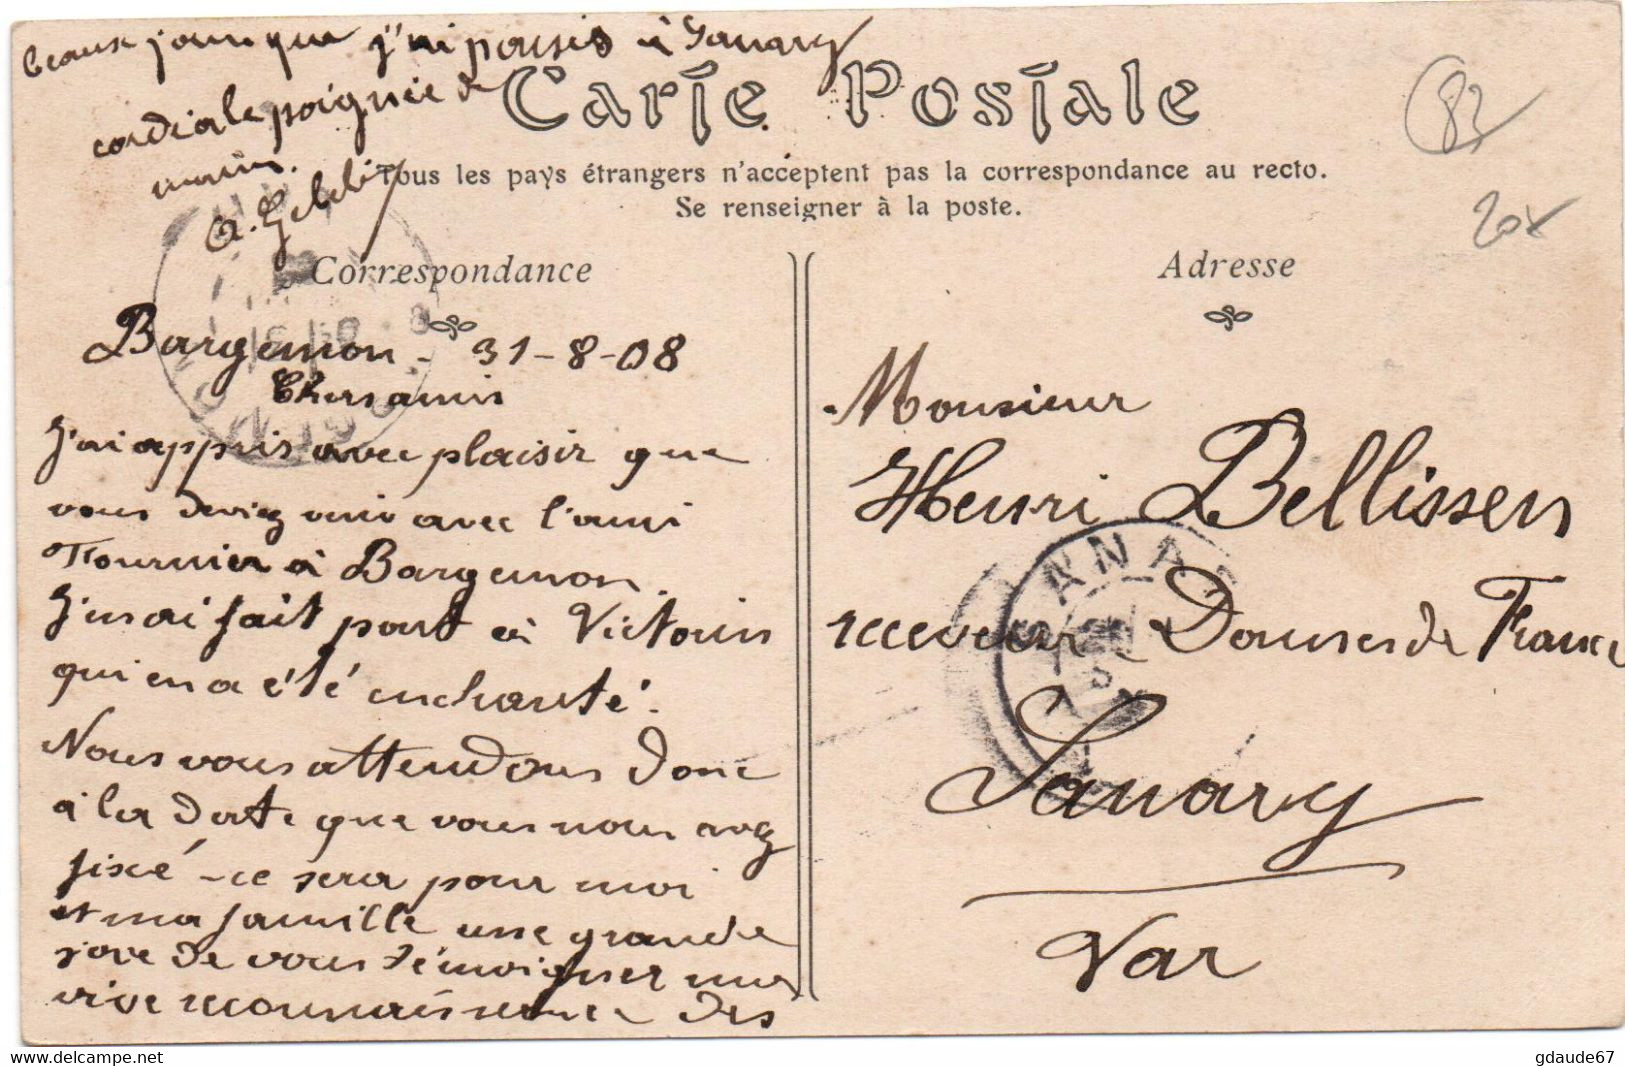 beaux jours que j'ai passés à Sanary
cordiale poignée de
main.
Carte Postale
Tous les pays étrangers n'acceptent pas la correspondance au recto.
Se renseigner à la poste.
Correspondance
Adresse
83
20x
Bargemon - 31-8-08
Chers amis
J'ai appris avec plaisir que
vous deviez venir avec l'ami
Fournier à Bargemon.
J'en ai fait part à Victorin
qui en a été enchanté.
Nous vous attendons donc
à la date que vous nous avez
fixé - ce sera pour moi
et ma famille une grande
joie de vous témoigner ma
vive reconnaissance des
Monsieur
Henri Bellissen
receveur Douanes de France
Sanary
Var
SANA
gdaude67